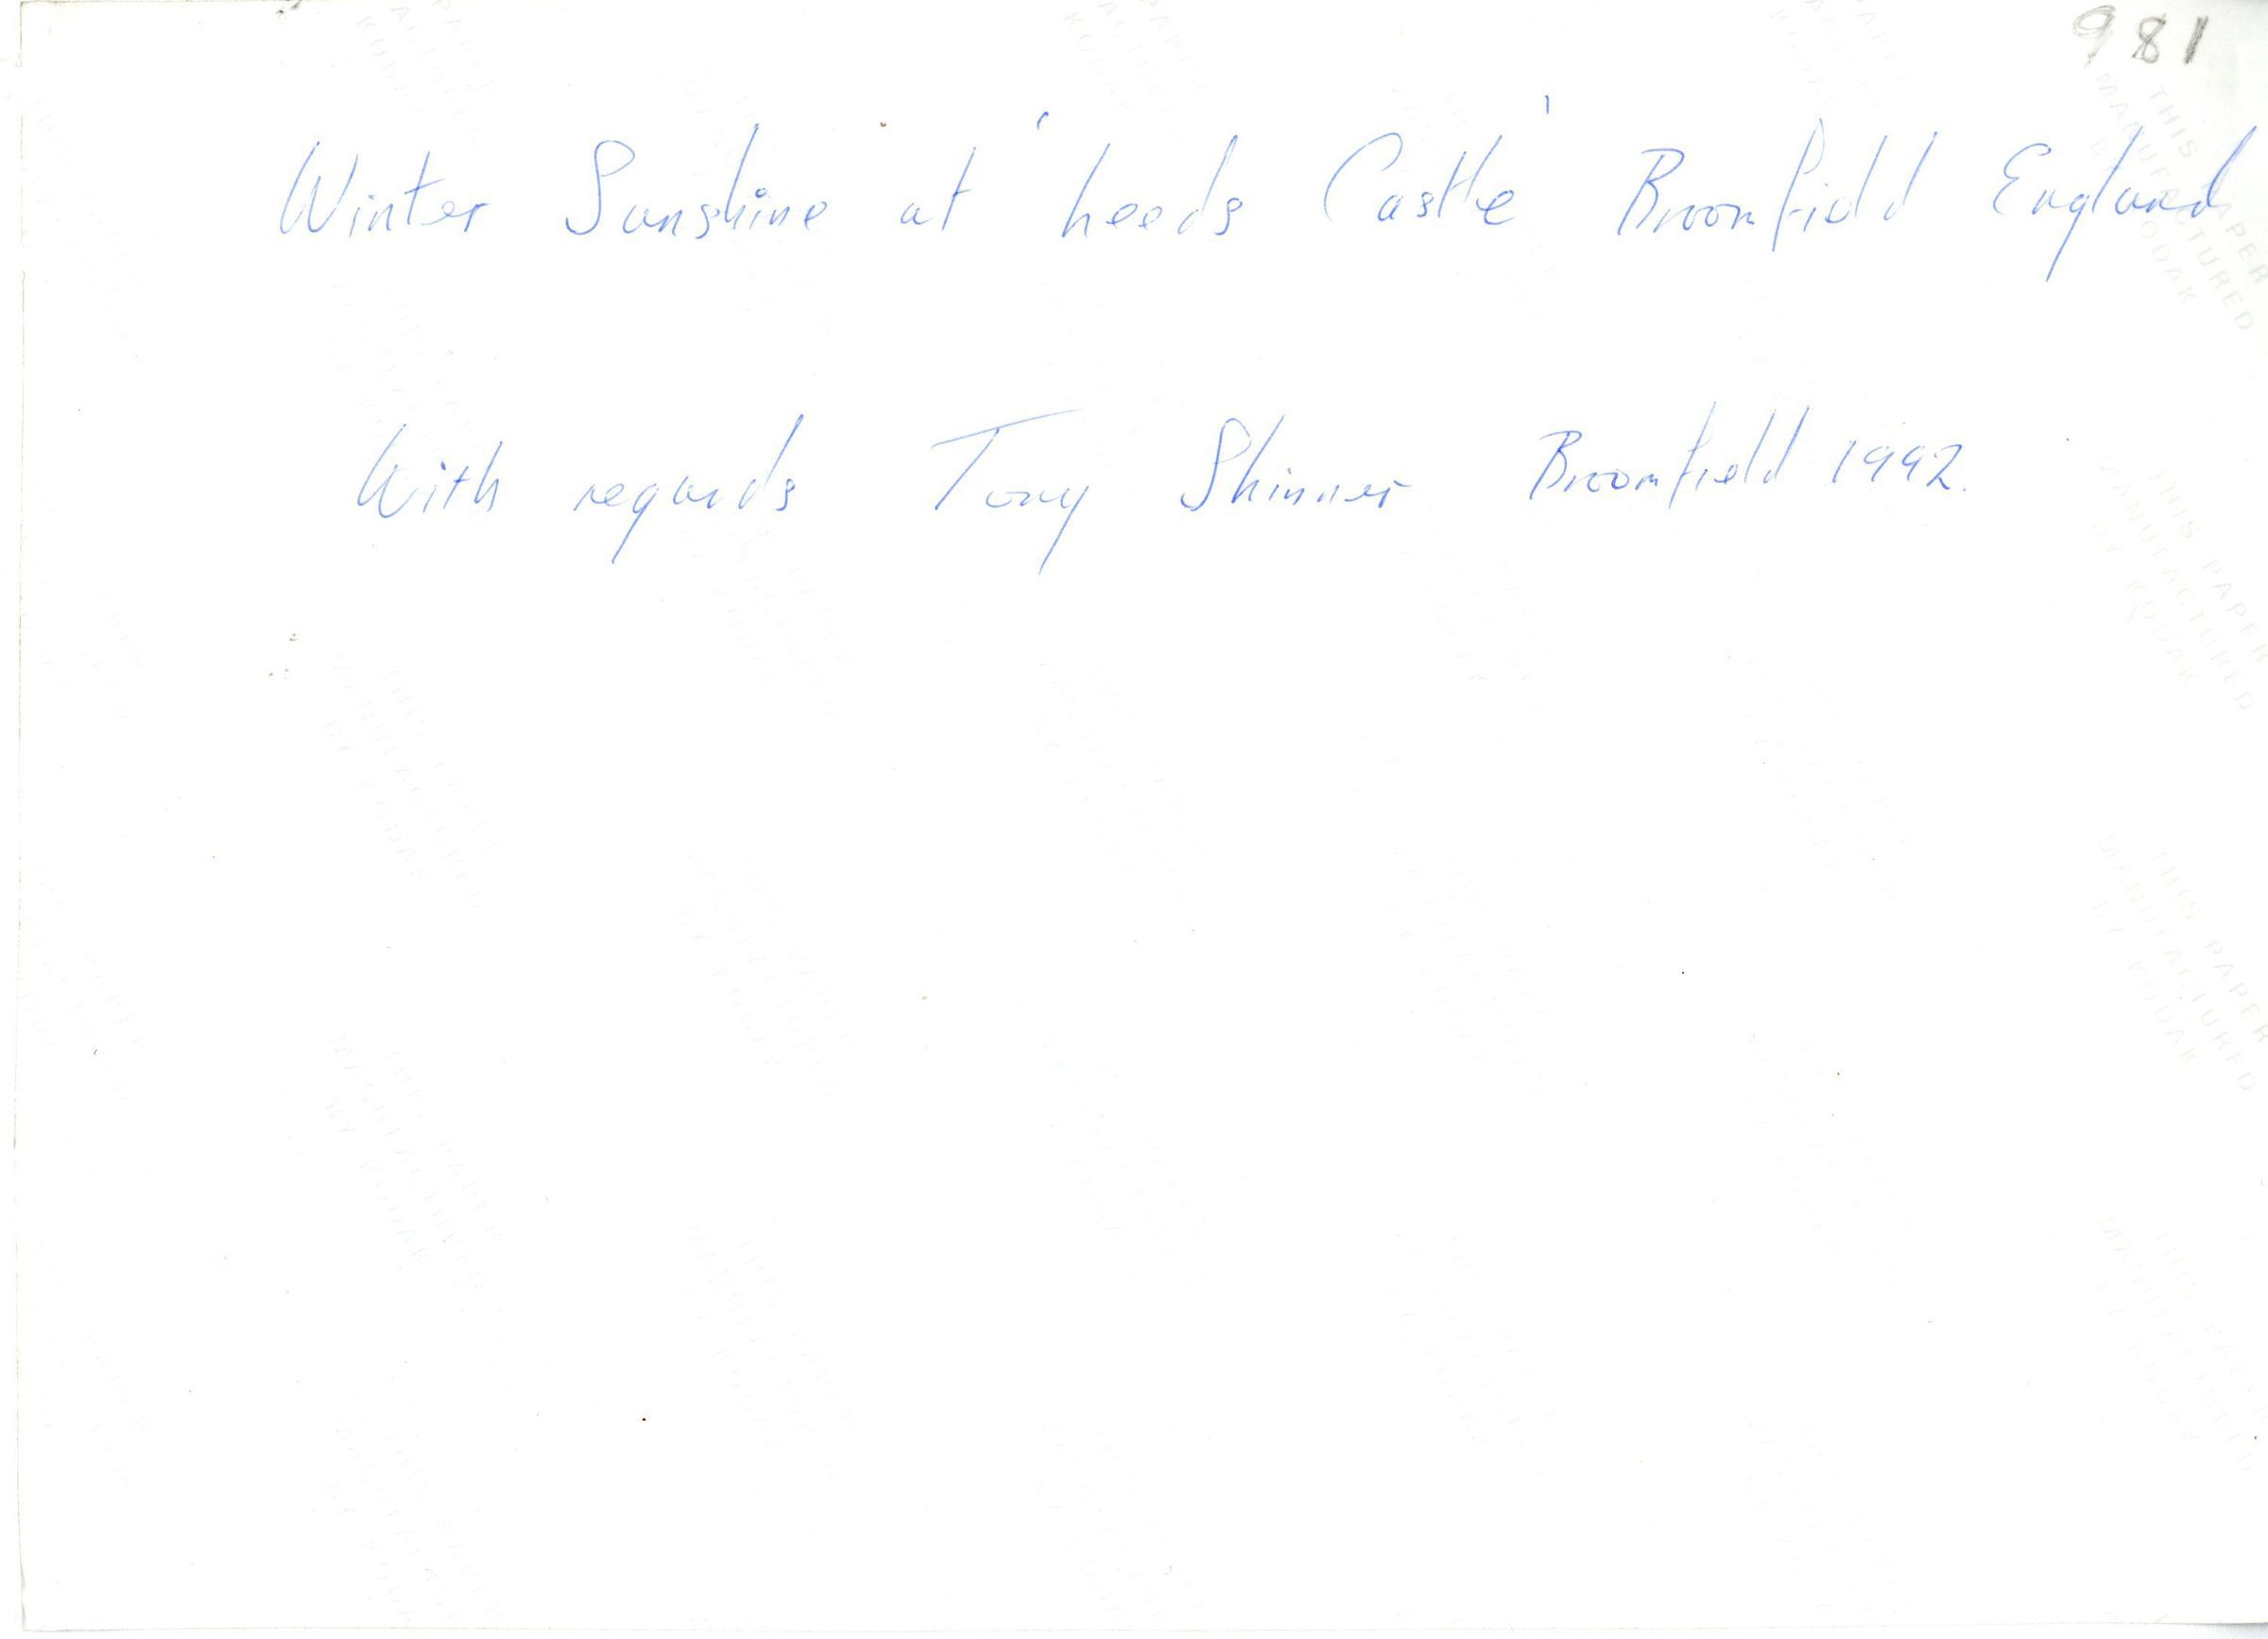 981
Winter Sunshine at 'Leeds Castle' Broomfield England
With regards Tony Skinner Broomfield 1992.
THIS PAPER
MANUFACTURED
BY KODAK